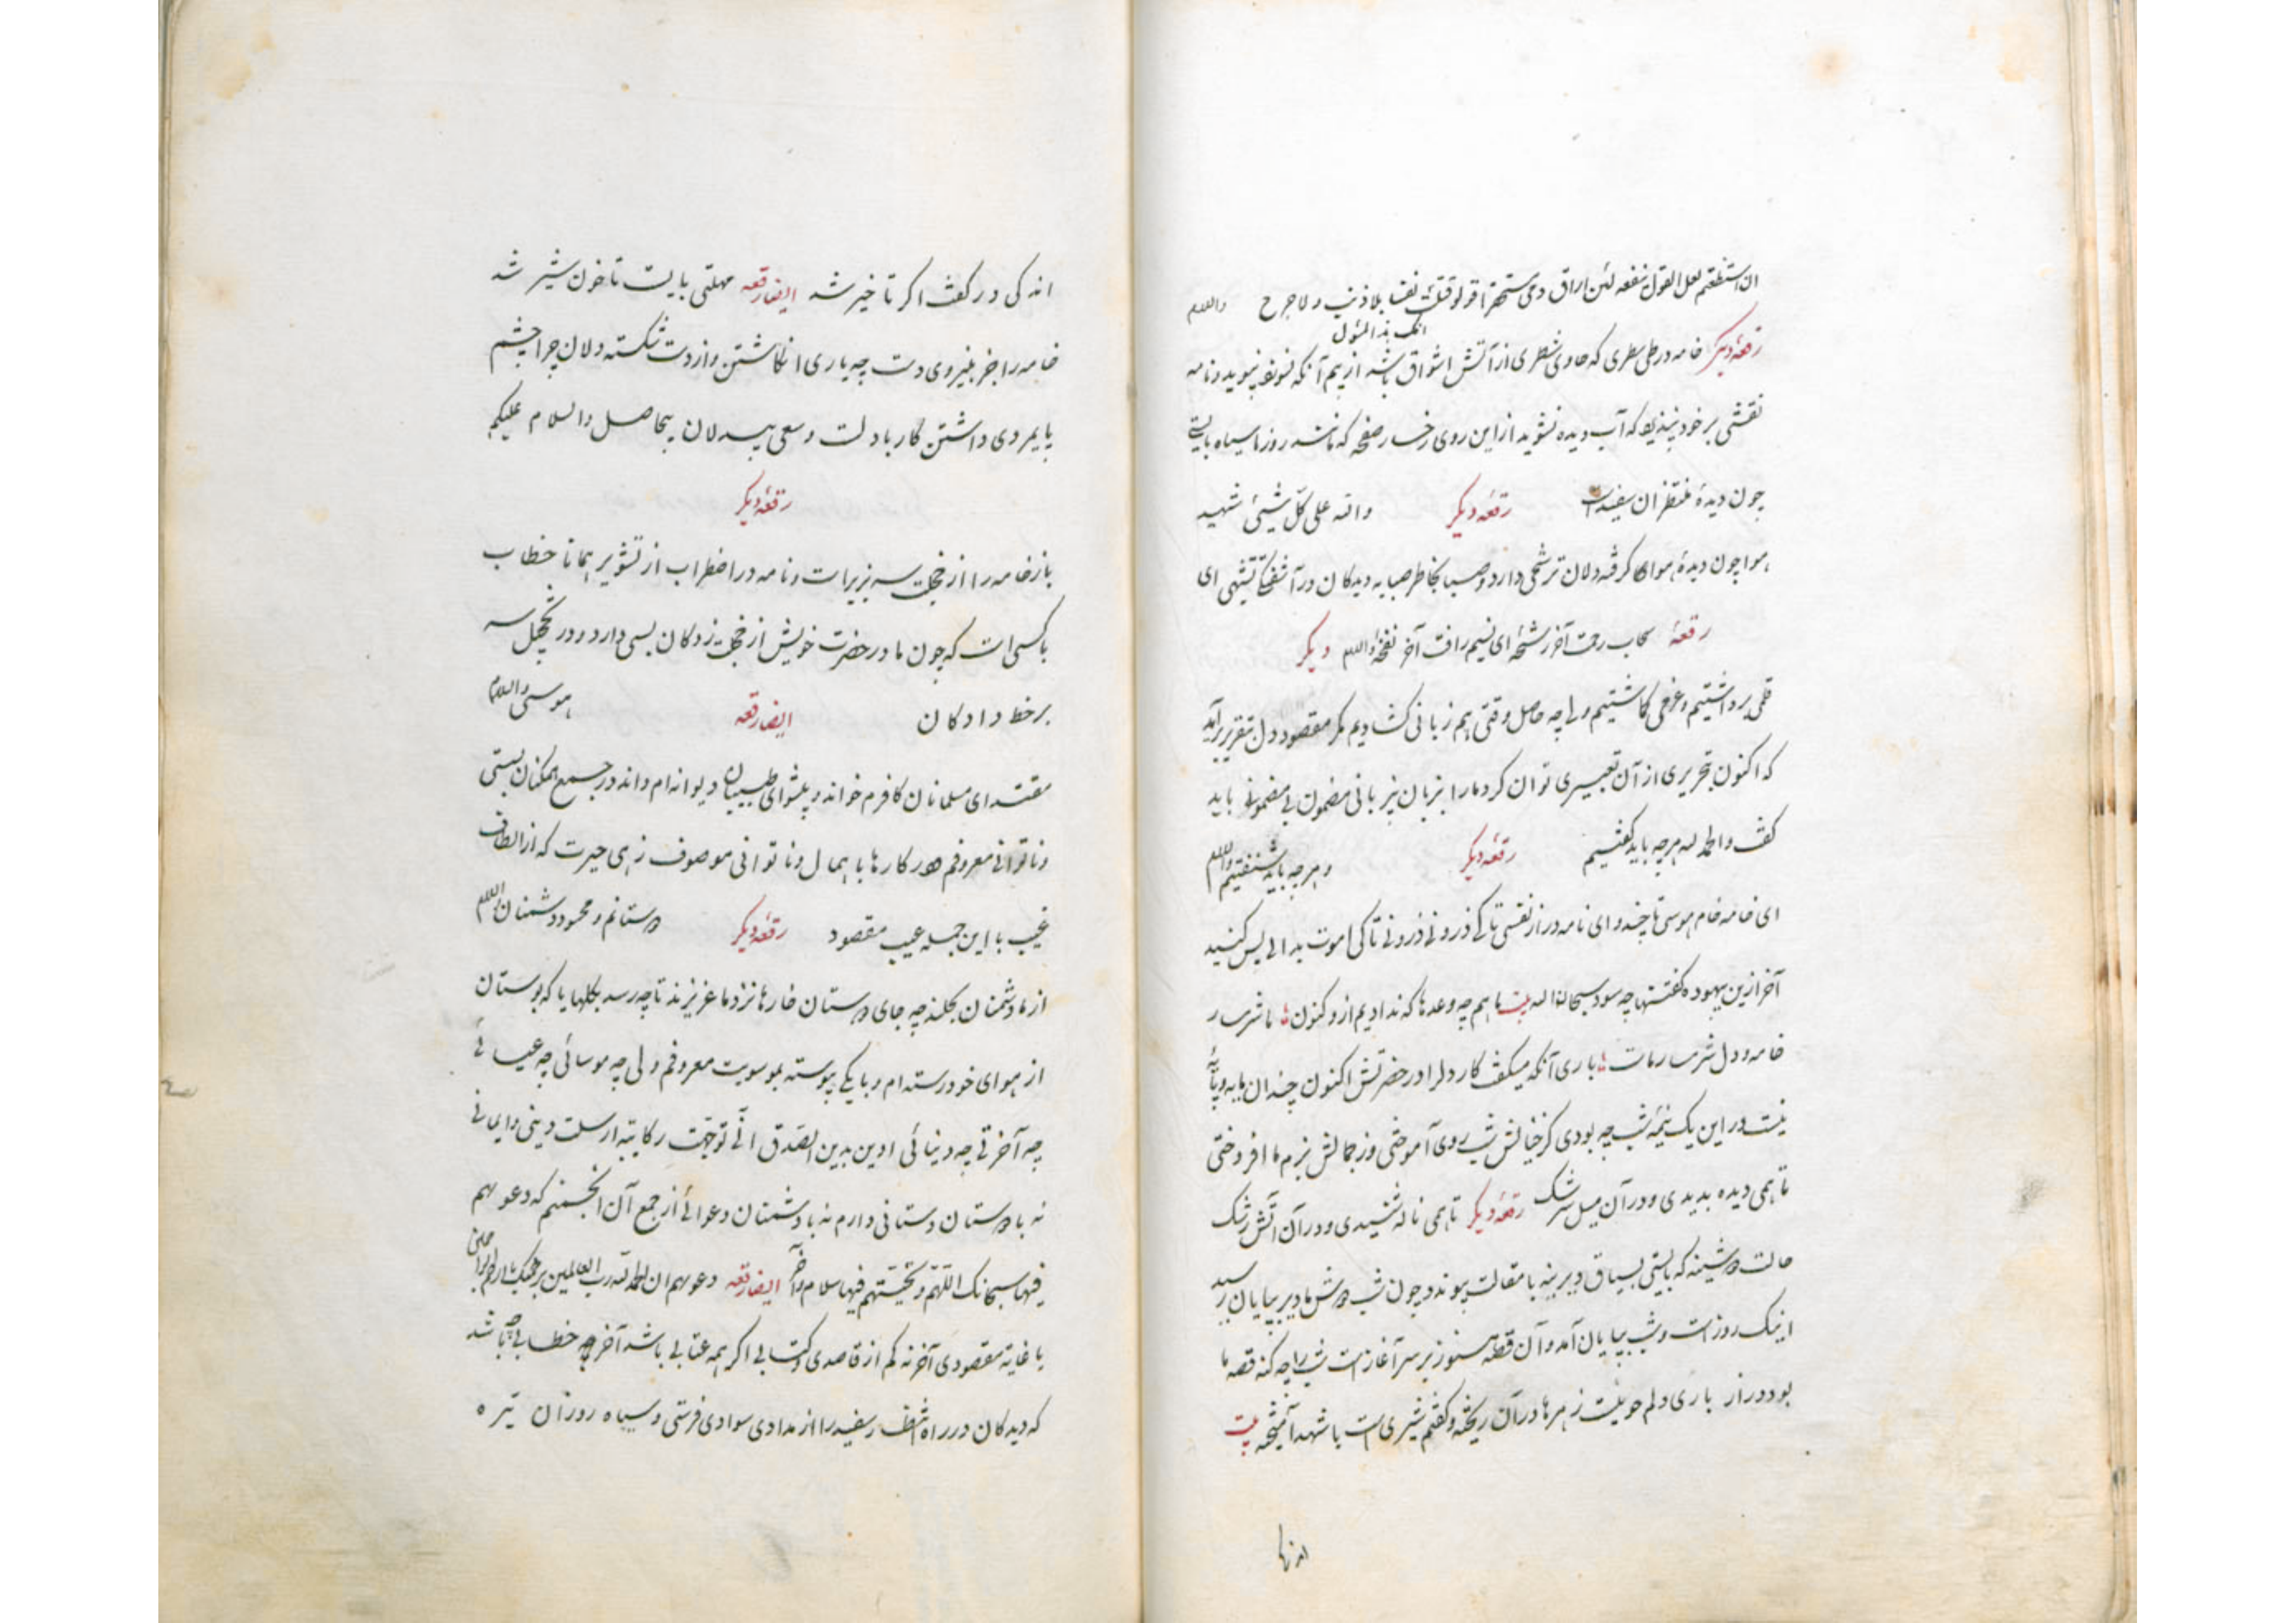 ان استطعتم لعل القول ینفعه لئن اراق دمی ستحقراً قر لو قتلت نفسا بلا ذنب ولا حرج والسلام
انک بذالمسئول
رقعهٔ دیکر خامه در طی سطری که حاوی شطری از آتش اشواق باشد از بیم آنکه نسوزد نپوید و نامه
نقشی بر خود نپذیرد که آب دیده نشوید از این روی رخسار صفحه که مانند روز ما سیاه بایستی
چون دیدهٔ منتظران سفید است رقعه دیکر والله علی کل شیئ شهید
هوا چون دیدهٔ هوای کرفته دلان ترشحی دارد و صبا بخاطر صبا به دیدکان در آشفتکی تشبهی ای
رقعهٔ سحاب رحمت آخر رشحهٔ ای نسیم رافت آخر نفخهٔ والسلام دیکر
قلمی برداشتیم و غرضی نکاشتیم ولی چه حاصل وقتی هم زبانی کشادیم مکر مقصود دل بتقریر برآید
که اکنون بتحریری از آن تعبیری توان کرد ما را بزبان بی زبانی مضمون بی مضمونی باید
کفت والحمد لله هر چه باید کفتیم رقعه دیکر و هر چه باید شنفتیم والسلام
ای خامه خام هوسی تا چند و ای نامه دراز نفسی تا کی ذرونی ذرونی تا کی اموت بدالی بس کنید
آخر ازین بیهوده کفتنها چه سود سبحان الله بیت با هم چه وعدها که ندادیم از و کنون ما شرمسار
خامه و دل شرمسار ماست باری آنکه میکفت کار دل را در حضرتش اکنون چندان مایه و پایهٔ
نیست در این یک نیمه شب چه بودی کز خیالش شب روی آموختی وز جمالش بزم ما افروختی
تا همی دیده بدیدی و در آن سیل سرشک رقعه دیکر تا همی ناله شنیدی و در آن آتش رشک
حالت دوشینه که بایستی بسیاق دیرینه با مقالت پیوندد چون شب دوش ما دیر بپایان رسید
اینک روز است و شب بپایان آمد و آن قصه هنوز بر سر آغاز است شب را چه کنه قصه ما
بود دراز باری دلم جویست زهرها در آن ریخته و کفتم شیری است با شهد آمیخته بیت
اندکی در کفت اکر تاخیر شد ایضا رقعه مهلتی بایست تا خون شیر شد
خامه را خبر بنیروی دست چه یاری انکاشتن و از دست شکسته دلان چرا چشم
پایمردی داشتن کار با دلست و سعی بیدلان بیحاصل والسلام علیکم
رقعهٔ دیکر
باز خامه را از خجلت سر بزیر است و نامه در اضطراب از تشویر همانا خطاب
با کسی است که چون ما در حضرت خویش از خجلت زدکان بسی دارد و در خجل سر
بر خط دادکان ایضا رقعه هوسی والسلام
مقتدای مسلمانان کافرم خواند و پیشوای طبیبان دیوانه ام داند در جمیع همکنان بسستی
و ناتوانی معروفم و در کارها باهمال و ناتوانی موصوف زهی حیرت که از الطاف
غیب با این جمله عیب مقصود رقعهٔ دیکر دوستانم و محسود دشمنان والسلام
از ما دشمنان نکلند چه جای دوستان خارها نزد ما عزیزند تا چه رسد بکلها یا که بوستان
از هوای خود رسته ام و با یکی پیوسته بموسویت معروفم ولی چه موسائی چه عیسائی
چه آخرتی چه دنیائی ادین بدین الصدق انی توجهت رکایبه ارسلت دینی و ایمانی
نه با دوستان دستانی دارم نه با دشمنان دعوائی از جمع آن انجمنم که دعویهم
فیها سبحانک اللهم و تحیتهم فیها سلام و آخر ایضا رقعه دعویهم ان الحمد لله رب العالمین برحمتک یا ارحم الراحمین
یا غایة مقصودی آخر نه کم از قاصدی و کتابی اکر همه عتابی باشد آخر چه خطابی چه باشد
که دیدکان در راه انتظار سفید را از مدادی سوادی فرستی و سیاه روزان تیره